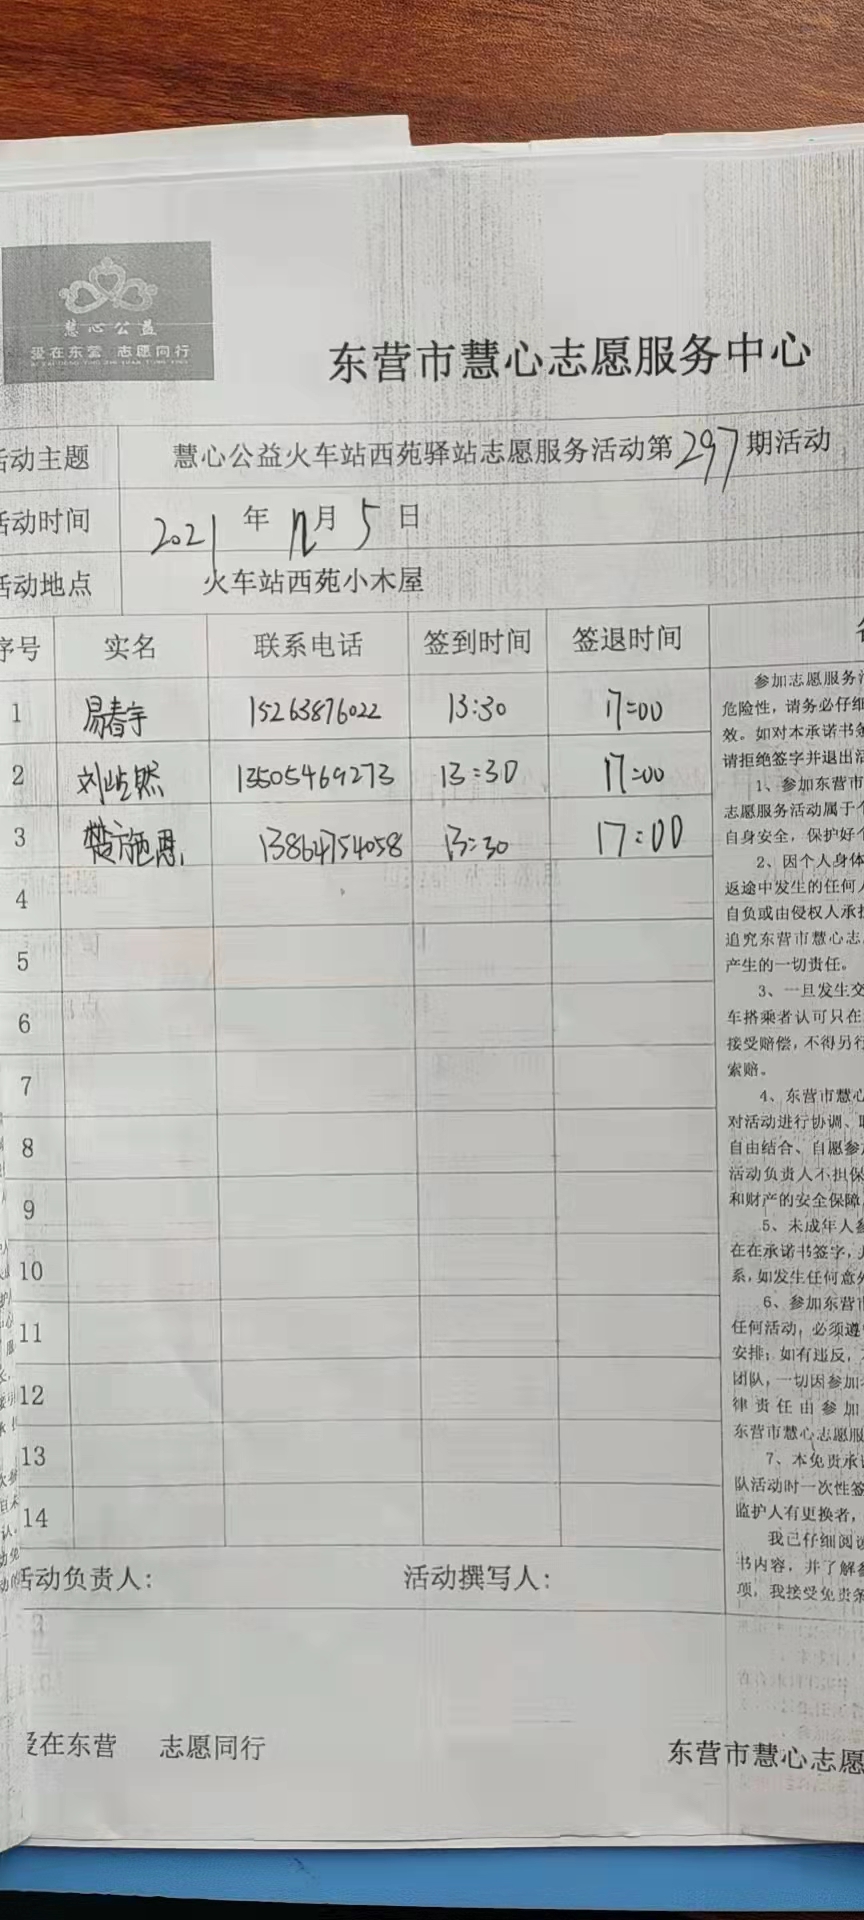 慧心公益
爱在东营 志愿同行
东营市慧心志愿服务中心
活动主题 慧心公益火车站西苑驿站志愿服务活动第297期活动
活动时间 2021年12月5日
活动地点 火车站西苑小木屋
序号 实名 联系电话 签到时间 签退时间
1 易春宇 15263876022 13:30 17:00
2 刘屹然 13505469273 13:30 17:00
3 楚施恩 13864754058 13:30 17:00
4
5
6
7
8
9
10
11
12
13
14
活动负责人： 活动撰写人：
参加志愿服务活
危险性，请务必仔细
效。如对本承诺书
请拒绝签字并退出活
1、参加东营市
志愿服务活动属于个
自身安全，保护好个
2、因个人身体
返途中发生的任何人
自负或由侵权人承担
追究东营市慧心志
产生的一切责任。
3、一旦发生交
车搭乘者认可只在
接受赔偿，不得另行
索赔。
4、东营市慧心
对活动进行协调、
自由结合、自愿参加
活动负责人不担保
和财产的安全保障
5、未成年人参
在在承诺书签字，
系，如发生任何意外
6、参加东营市
任何活动，必须遵守
安排；如有违反，
团队，一切因参加
律责任由参加
东营市慧心志愿服
7、本免责承诺
队活动时一次性签
监护人有更换者，
我已仔细阅读
书内容，并了解
项，我接受免责条
爱在东营 志愿同行 东营市慧心志愿